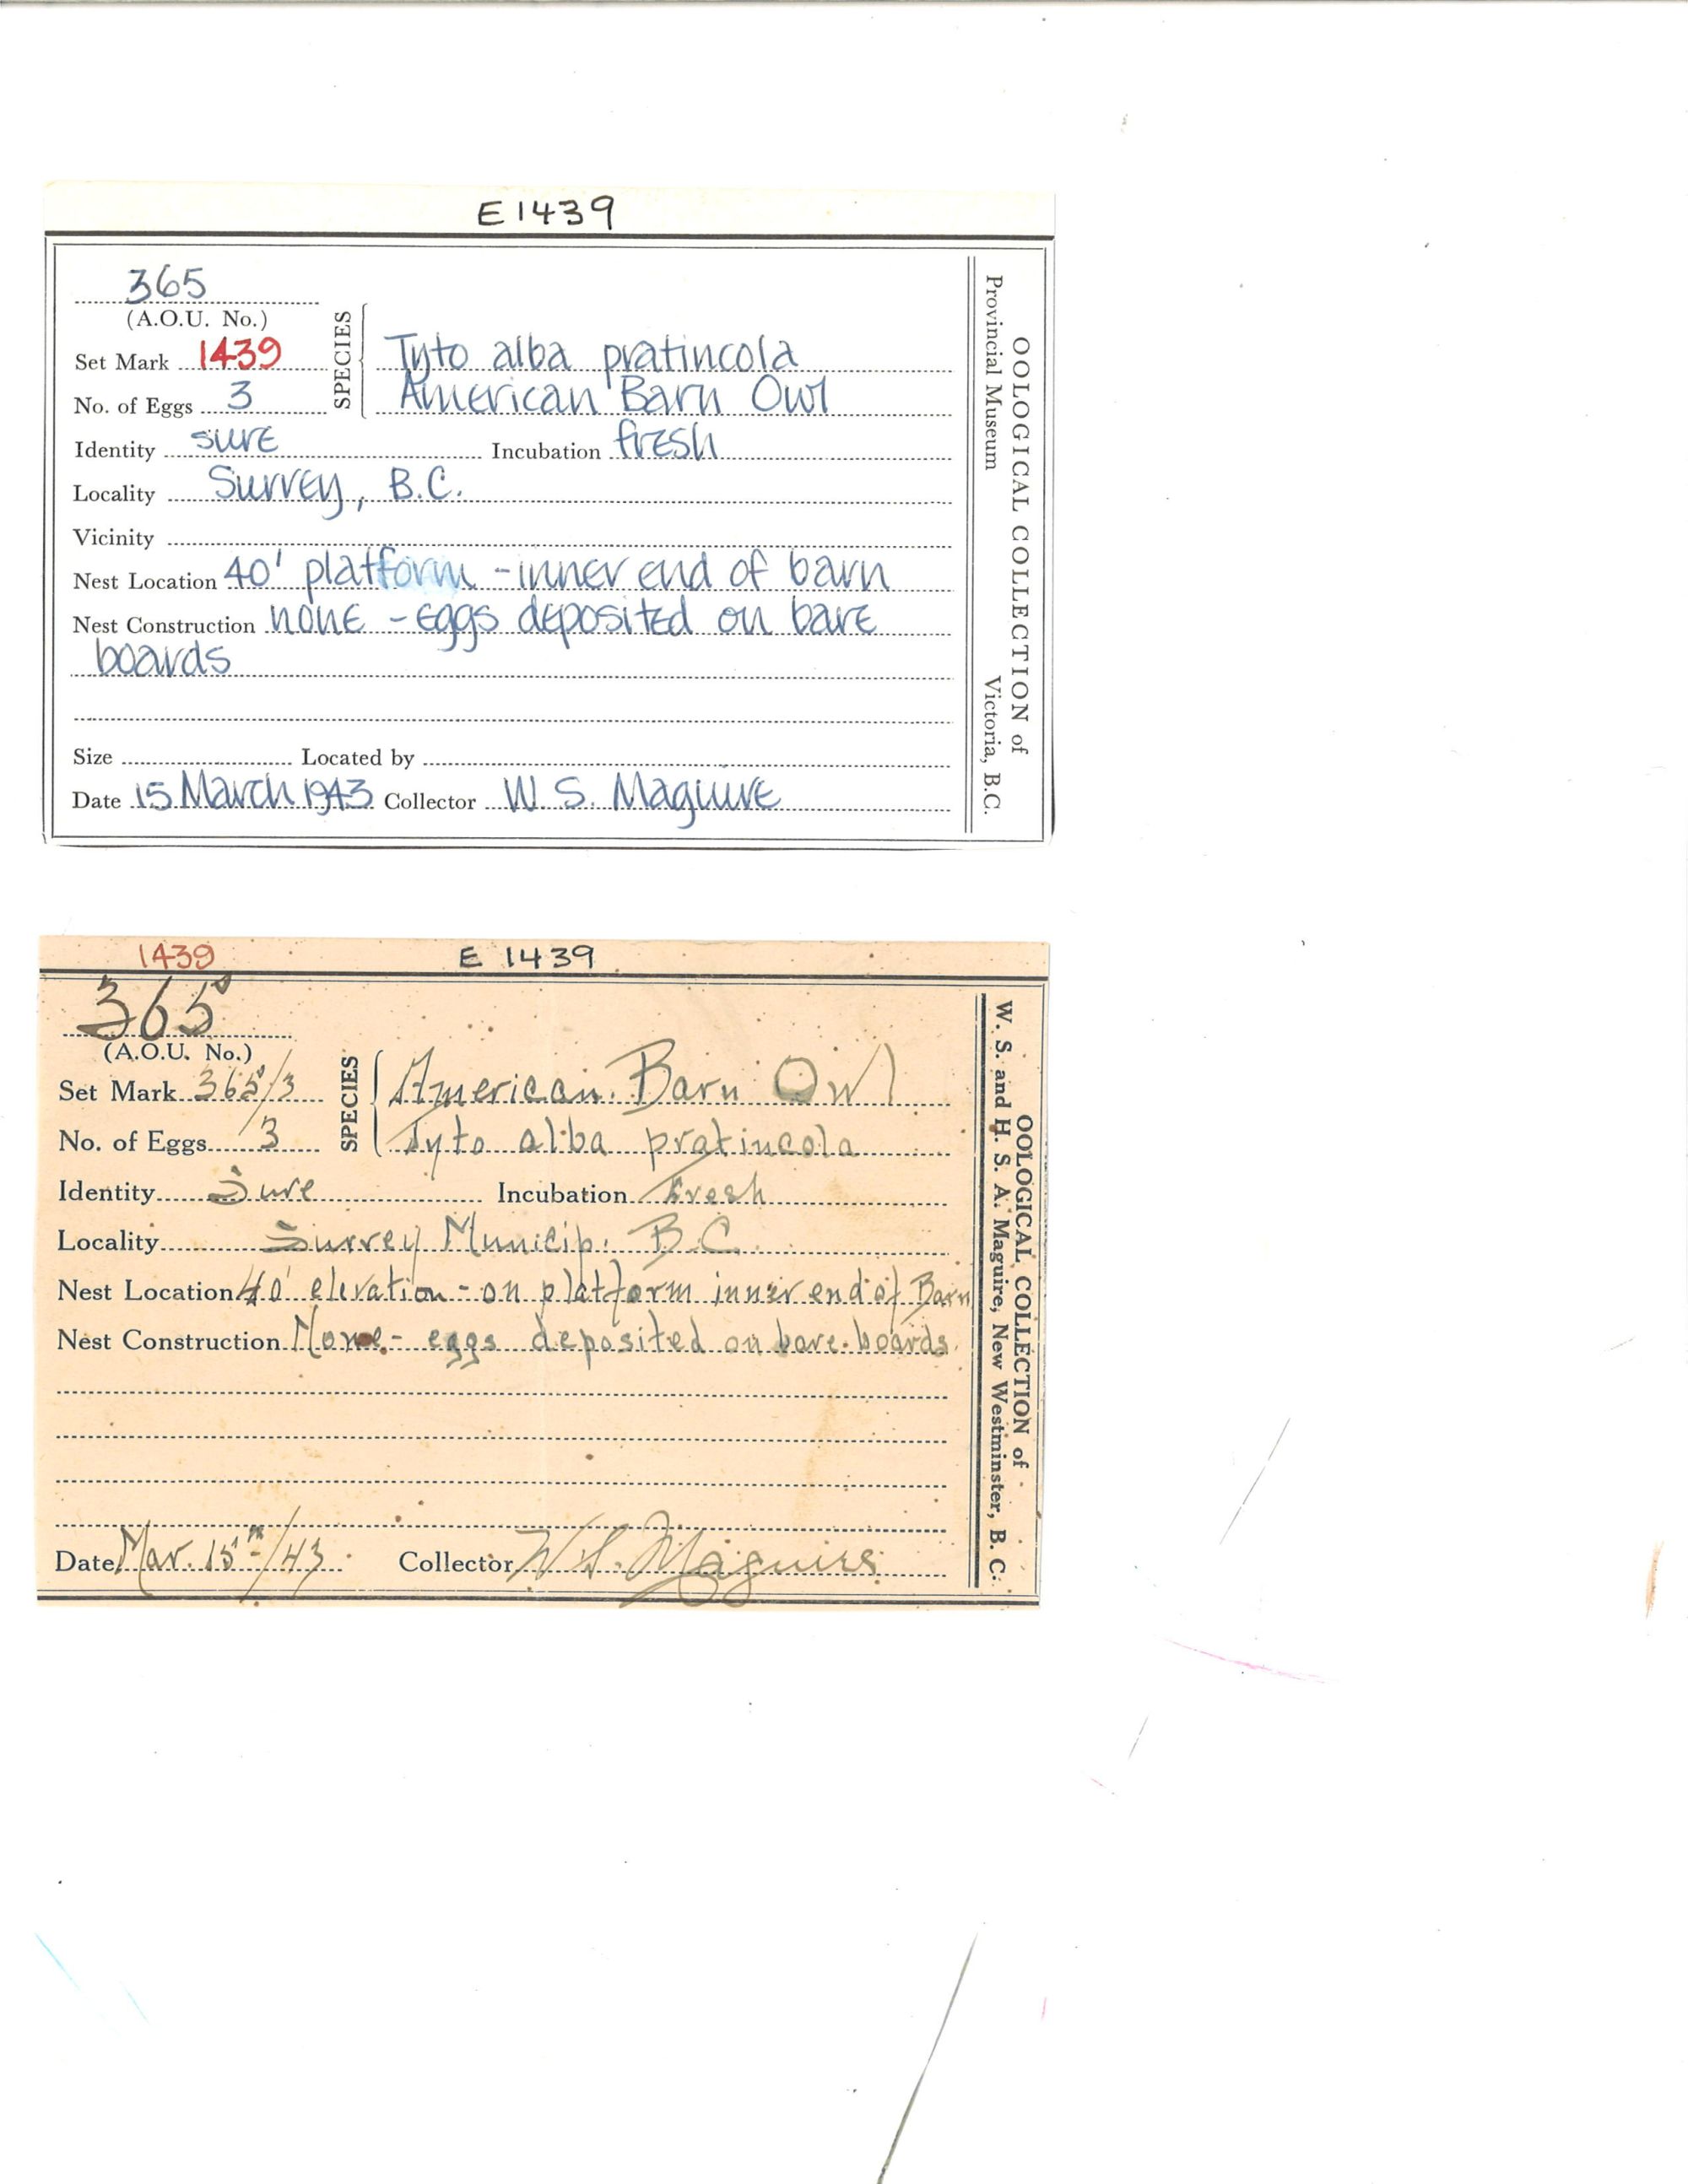 E1439
365
(A.O.U. No.)
Set Mark 1439
No. of Eggs 3
SPECIES
Tyto alba pratincola
American Barn Owl
Identity sure Incubation fresh
Locality Surrey, B.C.
Vicinity
Nest Location 40' platform - inner end of barn
Nest Construction none - eggs deposited on bare
boards
Size Located by
Date 15 March 1943 Collector W. S. Maguire
OOLOGICAL COLLECTION of
Provincial Museum Victoria, B.C.
1439 E 1439
365
(A.O.U. No.)
Set Mark 365/3
No. of Eggs 3
SPECIES
American Barn Owl
Tyto alba pratincola
Identity Sure Incubation Fresh
Locality Surrey Municip. B.C.
Nest Location 40' elevation - on platform inner end of Barn
Nest Construction None - eggs deposited on bare boards.
Date Mar. 15th/43 Collector W.S. Maguire
OOLOGICAL COLLECTION of
W. S. and H. S. A. Maguire, New Westminster, B. C.